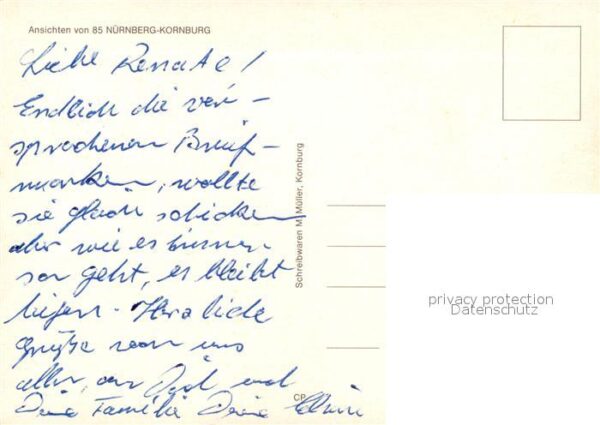 Ansichten von 85 NÜRNBERG-KORNBURG
Liebe Renate!
Endlich die ver-
sprochenen Brief-
marken, wollte
sie gleich schicken
aber wie es immer
so geht, es bleibt
liegen. Herzliche
Grüße von uns
allen, an Dich und
Deine Familie Deine
Schreibwaren M. Müller, Kornburg
CP
privacy protection
Datenschutz